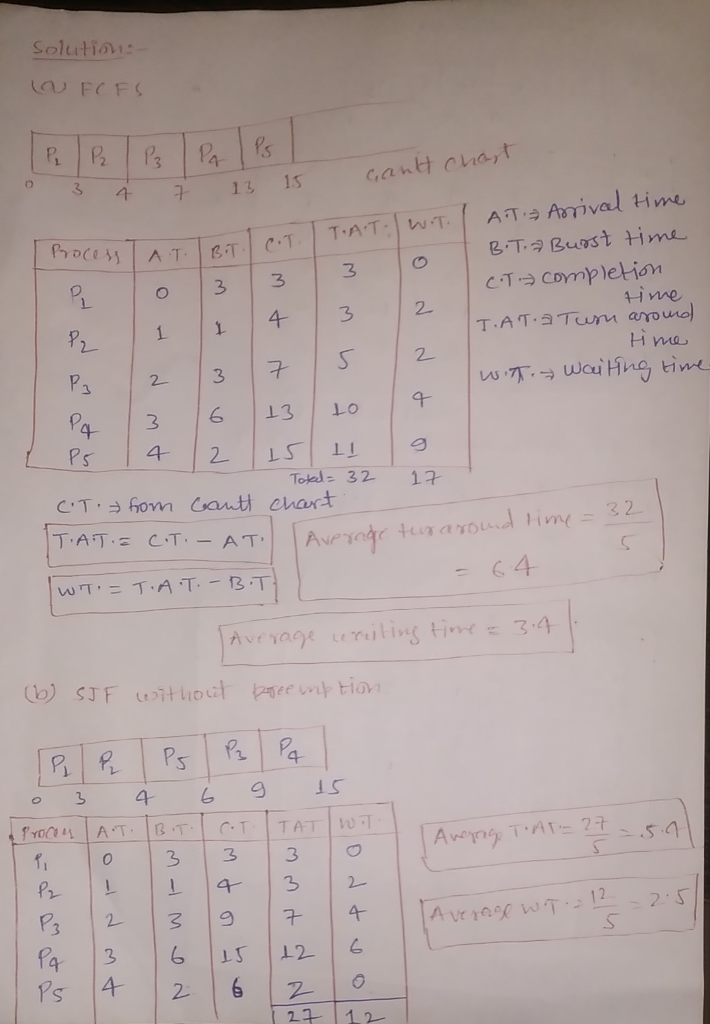 Solution:-
(a) FCFS
P1 P2 P3 P4 P5
0 3 4 7 13 15
Gantt chart
Process A.T. B.T. C.T. T.A.T. W.T.
P1 0 3 3 3 0
P2 1 1 4 3 2
P3 2 3 7 5 2
P4 3 6 13 10 4
P5 4 2 15 11 9
Total = 32 17
A.T. → Arrival time
B.T. → Burst time
C.T → Completion
time
T.A.T. → Turn around
time
W.T. → Waiting time
C.T. → from Gantt chart
T.A.T. = C.T. - A.T.
W.T. = T.A.T. - B.T
Average turaround time = 32/5
= 64
Average waiting time = 3.4
(b) SJF without preemption
P1 P2 P5 P3 P4
0 3 4 6 9 15
Process A.T. B.T. C.T. TAT W.T.
P1 0 3 3 3 0
P2 1 1 4 3 2
P3 2 3 9 7 4
P4 3 6 15 12 6
P5 4 2 6 2 0
27 12
Average T.AT = 27/5 = 5.4
Average W.T. = 12/5 = 2.5